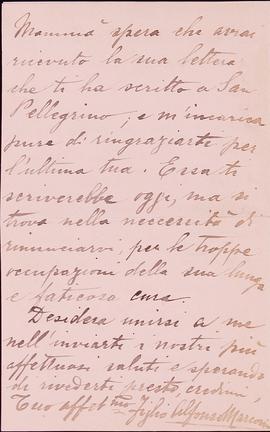 Mammà spera che avrai
ricevuto la sua lettera
che ti ha scritto a San
Pellegrino, e m'incarica
pure di ringraziarti per
l'ultima tua. Essa ti
scriverebbe oggi, ma si
trova nella necessità di
rinunciarvi, per le troppe
occupazioni della sua lunga
e faticosa cura.
Desidera unirsi a me
nell'inviarti i nostri più
affettuosi saluti e sperando
di rivederti presto, credimi,
Tuo affetmo figlio Alfonso Marconi